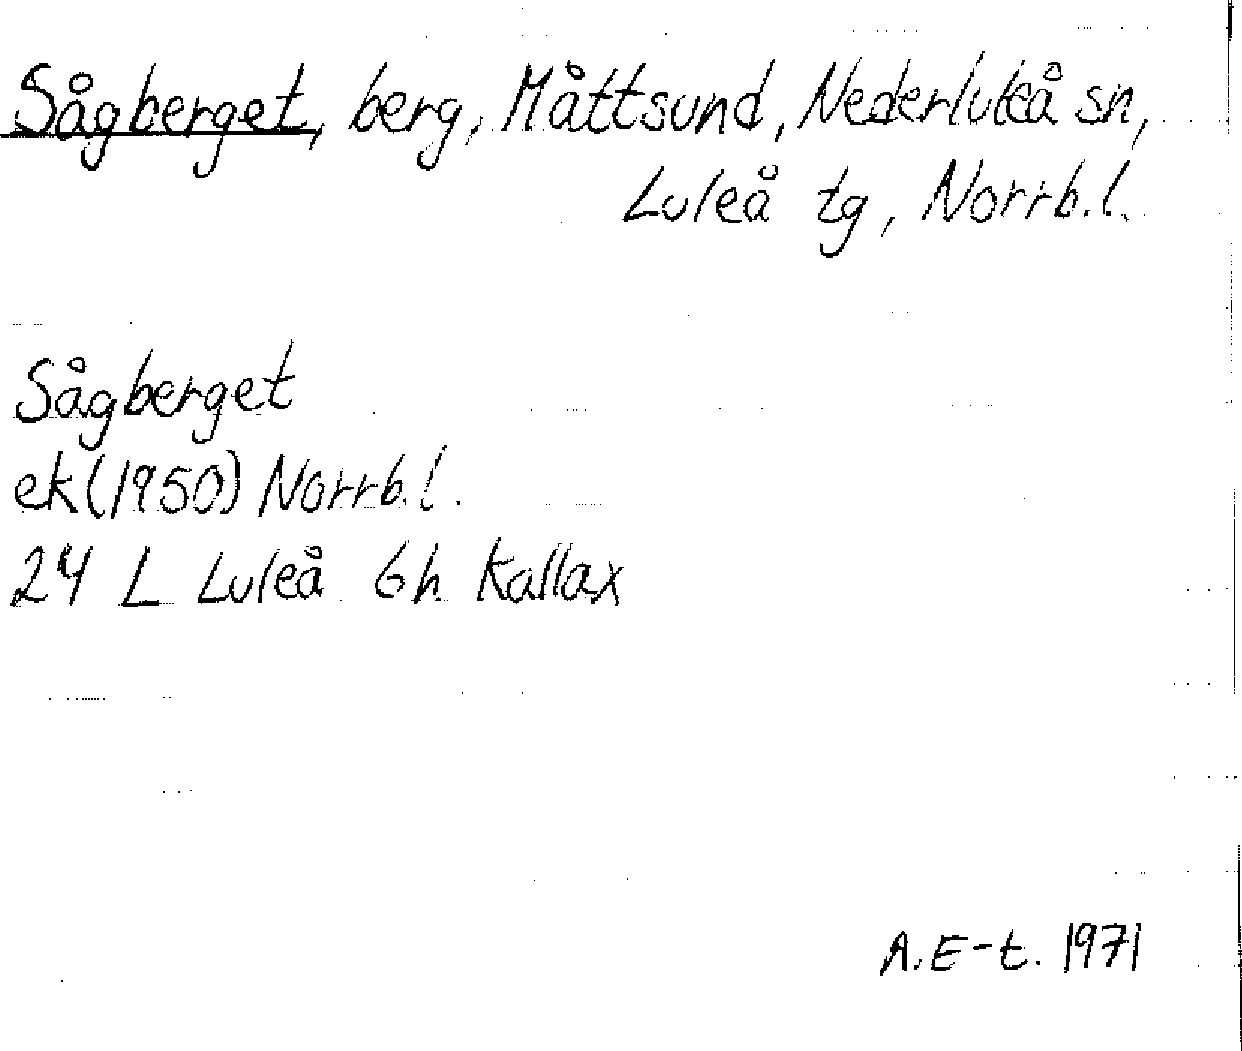 Sågberget, berg, Måttsund, Nederluleå sn,
Luleå tg, Norrb.l.
Sågberget
ek(1950) Norrb.l.
24 L Luleå 6h Kallax
A.E-t. 1971